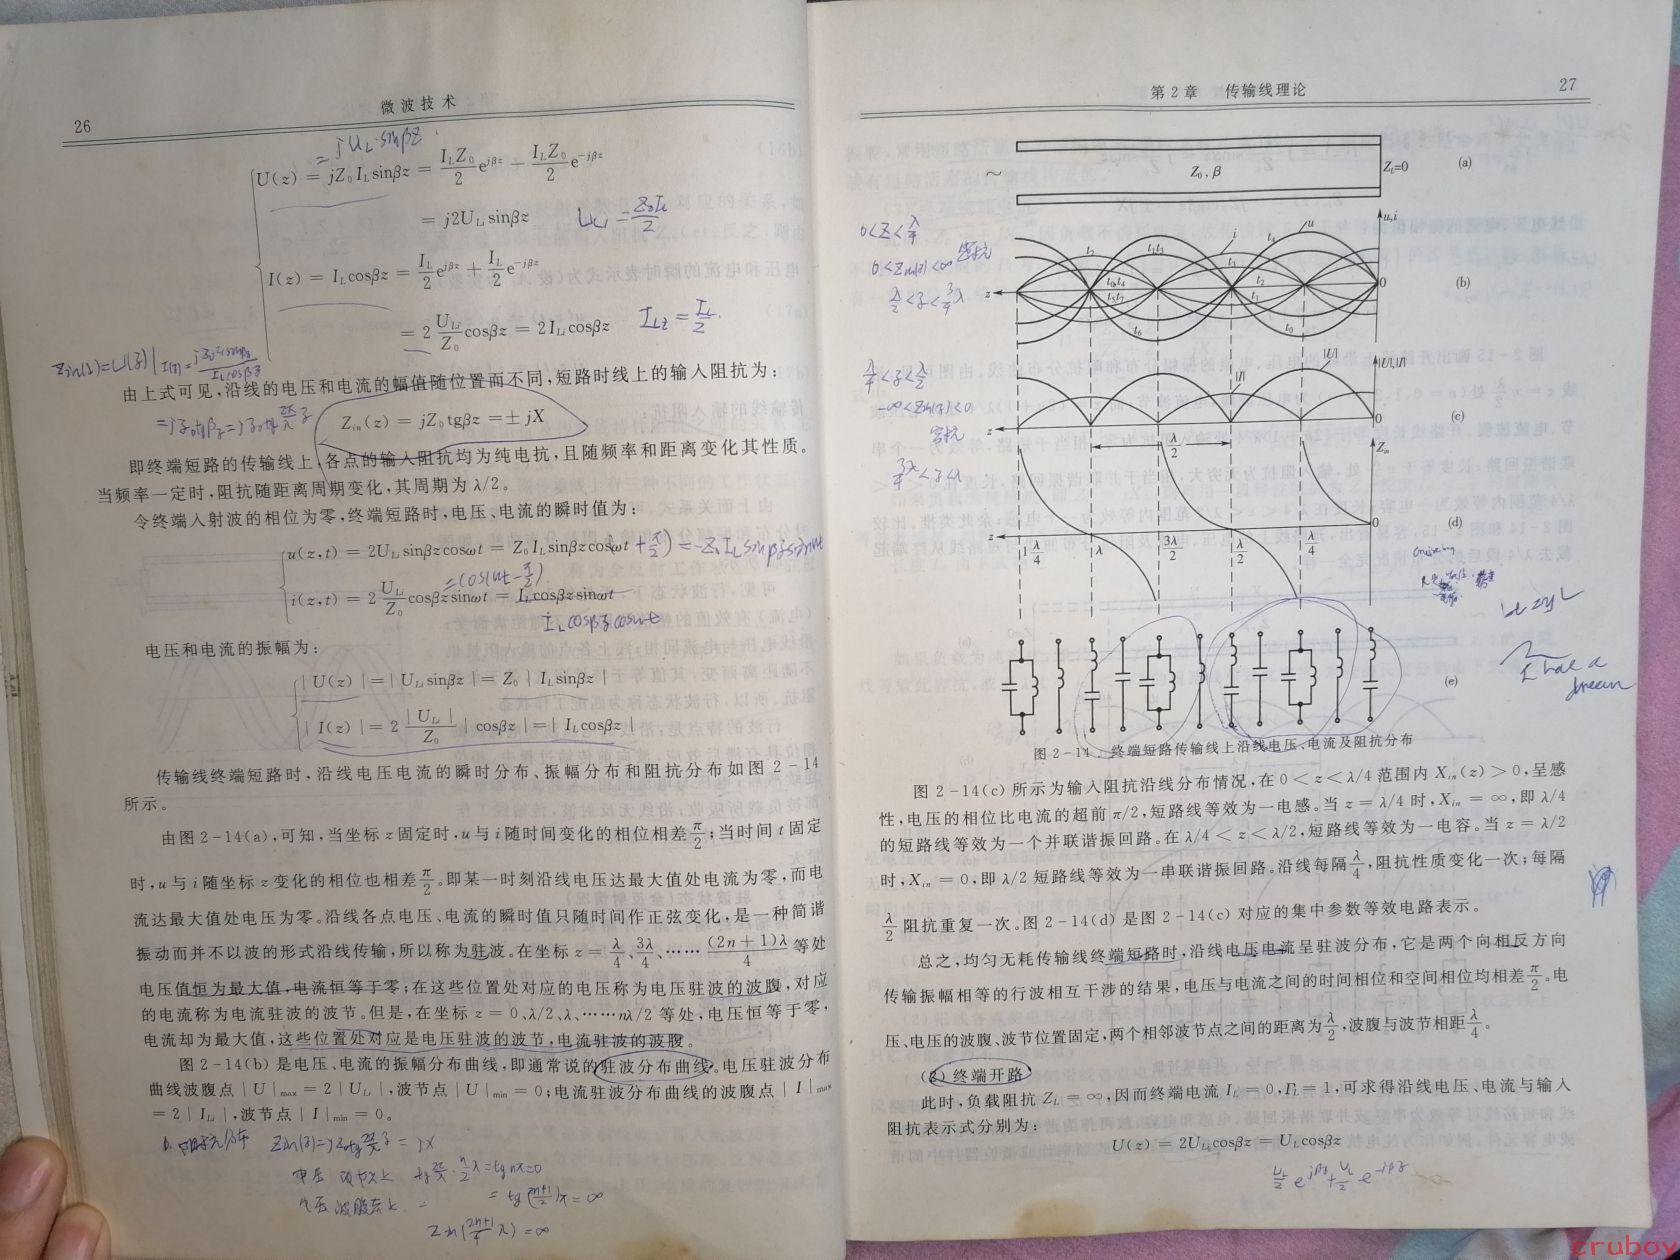 26
微波技术
= jU_L·sinβz
U(z) = jZ₀I_L sinβz = I_L Z₀/2 e^{jβz} − I_L Z₀/2 e^{-jβz}
= j2U_{Li} sinβz
U_{Li} = Z₀I_L/2
I(z) = I_L cosβz = I_L/2 e^{jβz} + I_L/2 e^{-jβz}
= 2 U_{Li}/Z₀ cosβz = 2I_{Li} cosβz
= I_L/2
由上式可见,沿线的电压和电流的幅值随位置而不同,短路时线上的输入阻抗为:
Z_{in}(z) = jZ₀tgβz = ± jX
即终端短路的传输线上,各点的输入阻抗均为纯电抗,且随频率和距离变化其性质。
当频率一定时,阻抗随距离周期变化,其周期为 λ/2。
令终端入射波的相位为零,终端短路时,电压、电流的瞬时值为:
u(z,t) = 2U_{Li} sinβz cosωt = Z₀I_L sinβz cos(ωt + π/2) = -Z₀I_L sinβz sinωt
= cos(ωt − π/2)
i(z,t) = 2 U_{Li}/Z₀ cosβz sinωt = I_L cosβz sinωt
I_L cosβz cosωt
电压和电流的振幅为:
|U(z)| = |U_{Li} sinβz| = Z₀|I_L sinβz|
|I(z)| = 2 |U_{Li}|/Z₀ |cosβz| = |I_L cosβz|
传输线终端短路时,沿线电压电流的瞬时分布、振幅分布和阻抗分布如图 2-14
所示。
由图 2-14(a),可知,当坐标 z 固定时,u 与 i 随时间变化的相位相差 π/2;当时间 t 固定
时,u 与 i 随坐标 z 变化的相位也相差 π/2。即某一时刻沿线电压达最大值处电流为零,而电
流达最大值处电压为零。沿线各点电压、电流的瞬时值只随时间作正弦变化,是一种简谐
振动而并不以波的形式沿线传输,所以称为驻波。在坐标 z = λ/4、3λ/4、…… (2n+1)λ/4 等处
电压值恒为最大值,电流恒等于零;在这些位置处对应的电压称为电压驻波的波腹,对应
的电流称为电流驻波的波节。但是,在坐标 z = 0、λ/2、λ、……nλ/2 等处,电压恒等于零,
电流却为最大值,这些位置处对应是电压驻波的波节,电流驻波的波腹。
图 2-14(b) 是电压、电流的振幅分布曲线,即通常说的驻波分布曲线。电压驻波分布
曲线波腹点 |U|_{max} = 2|U_{Li}|,波节点 |U|_{min} = 0;电流驻波分布曲线的波腹点 |I|_{max}
= 2|I_{Li}|,波节点 |I|_{min} = 0。
第2章 传输线理论
27
~
Z₀, β
Z_L=0
(a)
0<z<λ/4
u,i
t₂
t₁t₃
i
t₄
u
z
t₀t₄
t₅t₇
t₆
t₂
t₁
t₀
0
(b)
|U|
|I|
|U|,|I|
z
0
(c)
λ/2
Z_{in}
z
1λ/4
λ
3λ/2
λ/2
λ/4
0
(d)
I have a
dream
(e)
图 2-14 终端短路传输线上沿线电压、电流及阻抗分布
图 2-14(c) 所示为输入阻抗沿线分布情况,在 0 < z < λ/4 范围内 X_{in}(z) > 0,呈感
性,电压的相位比电流的超前 π/2,短路线等效为一电感。当 z = λ/4 时,X_{in} = ∞,即 λ/4
的短路线等效为一个并联谐振回路。在 λ/4 < z < λ/2,短路线等效为一电容。当 z = λ/2
时,X_{in} = 0,即 λ/2 短路线等效为一串联谐振回路。沿线每隔 λ/4,阻抗性质变化一次;每隔
λ/2 阻抗重复一次。图 2-14(d) 是图 2-14(c) 对应的集中参数等效电路表示。
总之,均匀无耗传输线终端短路时,沿线电压电流呈驻波分布,它是两个向相反方向
传输振幅相等的行波相互干涉的结果,电压与电流之间的时间相位和空间相位均相差 π/2。电
压、电压的波腹、波节位置固定,两个相邻波节点之间的距离为 λ/2,波腹与波节相距 λ/4。
(2) 终端开路
此时,负载阻抗 Z_L = ∞,因而终端电流 I_L = 0,Γ_L = 1,可求得沿线电压、电流与输入
阻抗表示式分别为:
U(z) = 2U_{Li} cosβz = U_L cosβz
U_L/2 e^{jβz} + U_L/2 e^{-jβz}
cruboy